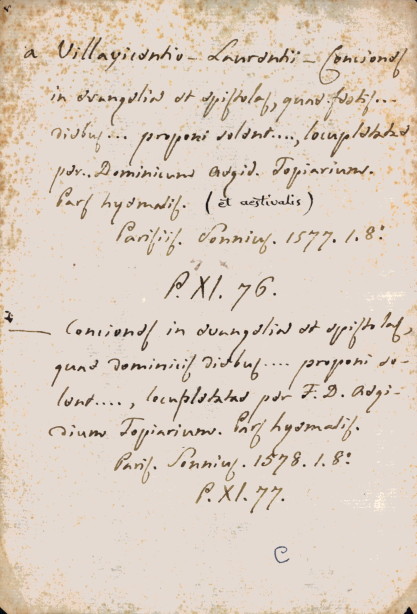 a Villavicentio - Laurentii - Conciones
in evangelia et epistolas, quae festis...
diebus... proponi solent...., locupletatae
per.. Dominicum Aegid. Topiarium.
Pars hyemalis. (et aestivalis)
Parisiis. Sonnius. 1577. 1. 8°.
P. XI. 76.
— Conciones in evangelia et epistolas,
quae dominicis diebus.... proponi so-
lent...., locupletatae per F. D. Aegi-
dium Topiarium. Pars hyemalis.
Paris. Sonnius. 1578. 1. 8°.
P. XI. 77.
C